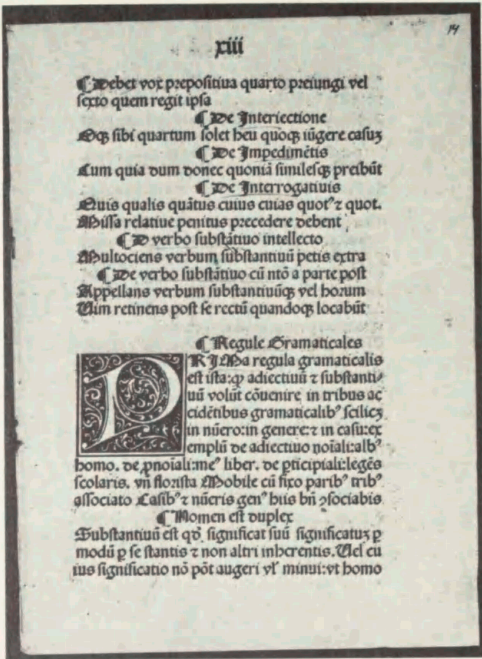 14
xiii
¶ Debet vox prepositiua quarto preiungi vel
sexto quem regit ipsa
¶ De Interiectione
Oqꝫ sibi quartum solet heu quoqꝫ iũgere casuꝫ
¶ De Impedimẽtis
Cum quia dum donec quoniã similesqꝫ preibũt
¶ De Interrogatiuis
Quis qualis quãtus cuius cuias quot⁊ ⁊ quot.
Missa relatiue penitus precedere debent
¶ D verbo substãtiuo intellecto
Multociens verbum substantiuũ petis extra
¶ De verbo substãtiuo cũ ntõ a parte post
Appellans verbum substantiuũqꝫ vel horum
Vim retinens post se rectũ quandoqꝫ locabũt
¶ Regule Gramaticales
PRIMa regula gramaticalis
est ista: ꝙ adiectiuũ ⁊ substanti-
uũ volũt cõuenire in tribus ac
cidẽtibus gramaticalibꝰ scilicꝫ
in nũero: in genere: ⁊ in casu: ex
emplũ de adiectiuo noĩali: albꝰ
homo. de ꝓnoĩali: meꝰ liber. de ꝑticipiali: legẽs
scolaris. vñ florista Mobile cũ fixo paribꝰ tribꝰ
associato Casibꝰ ⁊ nũeris genꝰ hiis bñ ꝯsociabis
¶ Nomen est duplex
Substantiuũ est qd̓ significat suũ significatuꝫ ꝑ
modũ ꝑ se stantis ⁊ non altri inherentis. Vel cu
ius significatio nõ põt augeri vl̓ minui: vt homo